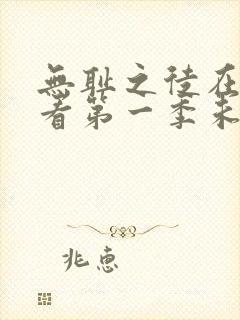 無耻之徒在
看第一季未
兆惠